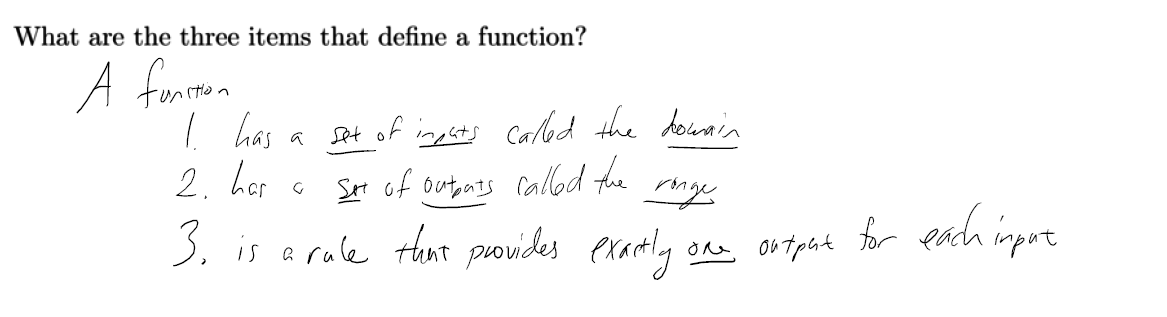 What are the three items that define a function?
A function
1. has a set of inputs called the domain
2. has a set of outputs called the range
3. is a rule that provides exactly one output for each input